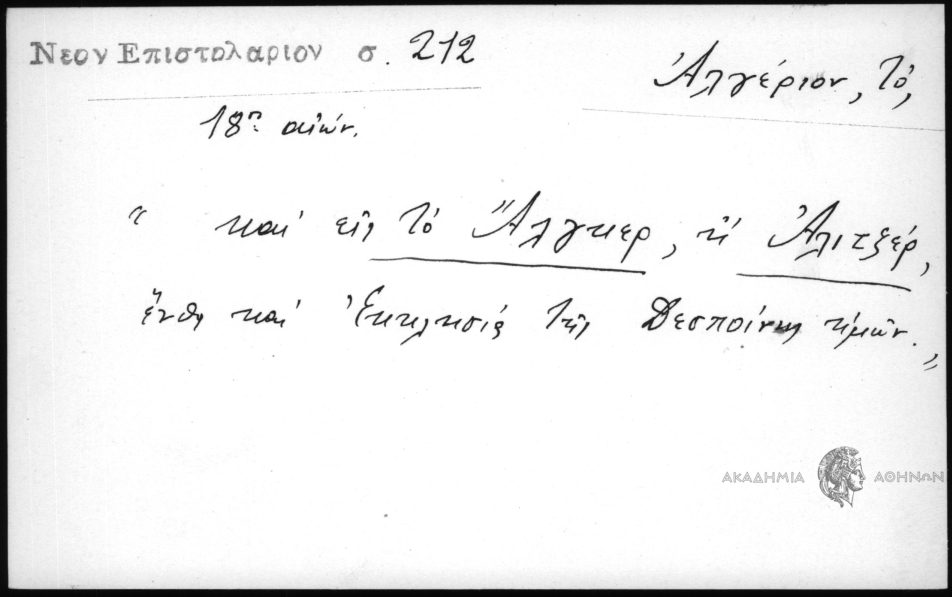 Νεον Επιστολαριον σ. 212
Ἀλγέριον, τό,
18ος αἰών.
“ καί εἰς τό Ἄλγκερ, ἤ Ἀλιτζέρ,
ἔνθα καί Ἐκκλησία τῆς Δεσποίνης ἡμῶν. ”
ΑΚΑΔΗΜΙΑ ΑΘΗΝΩΝ